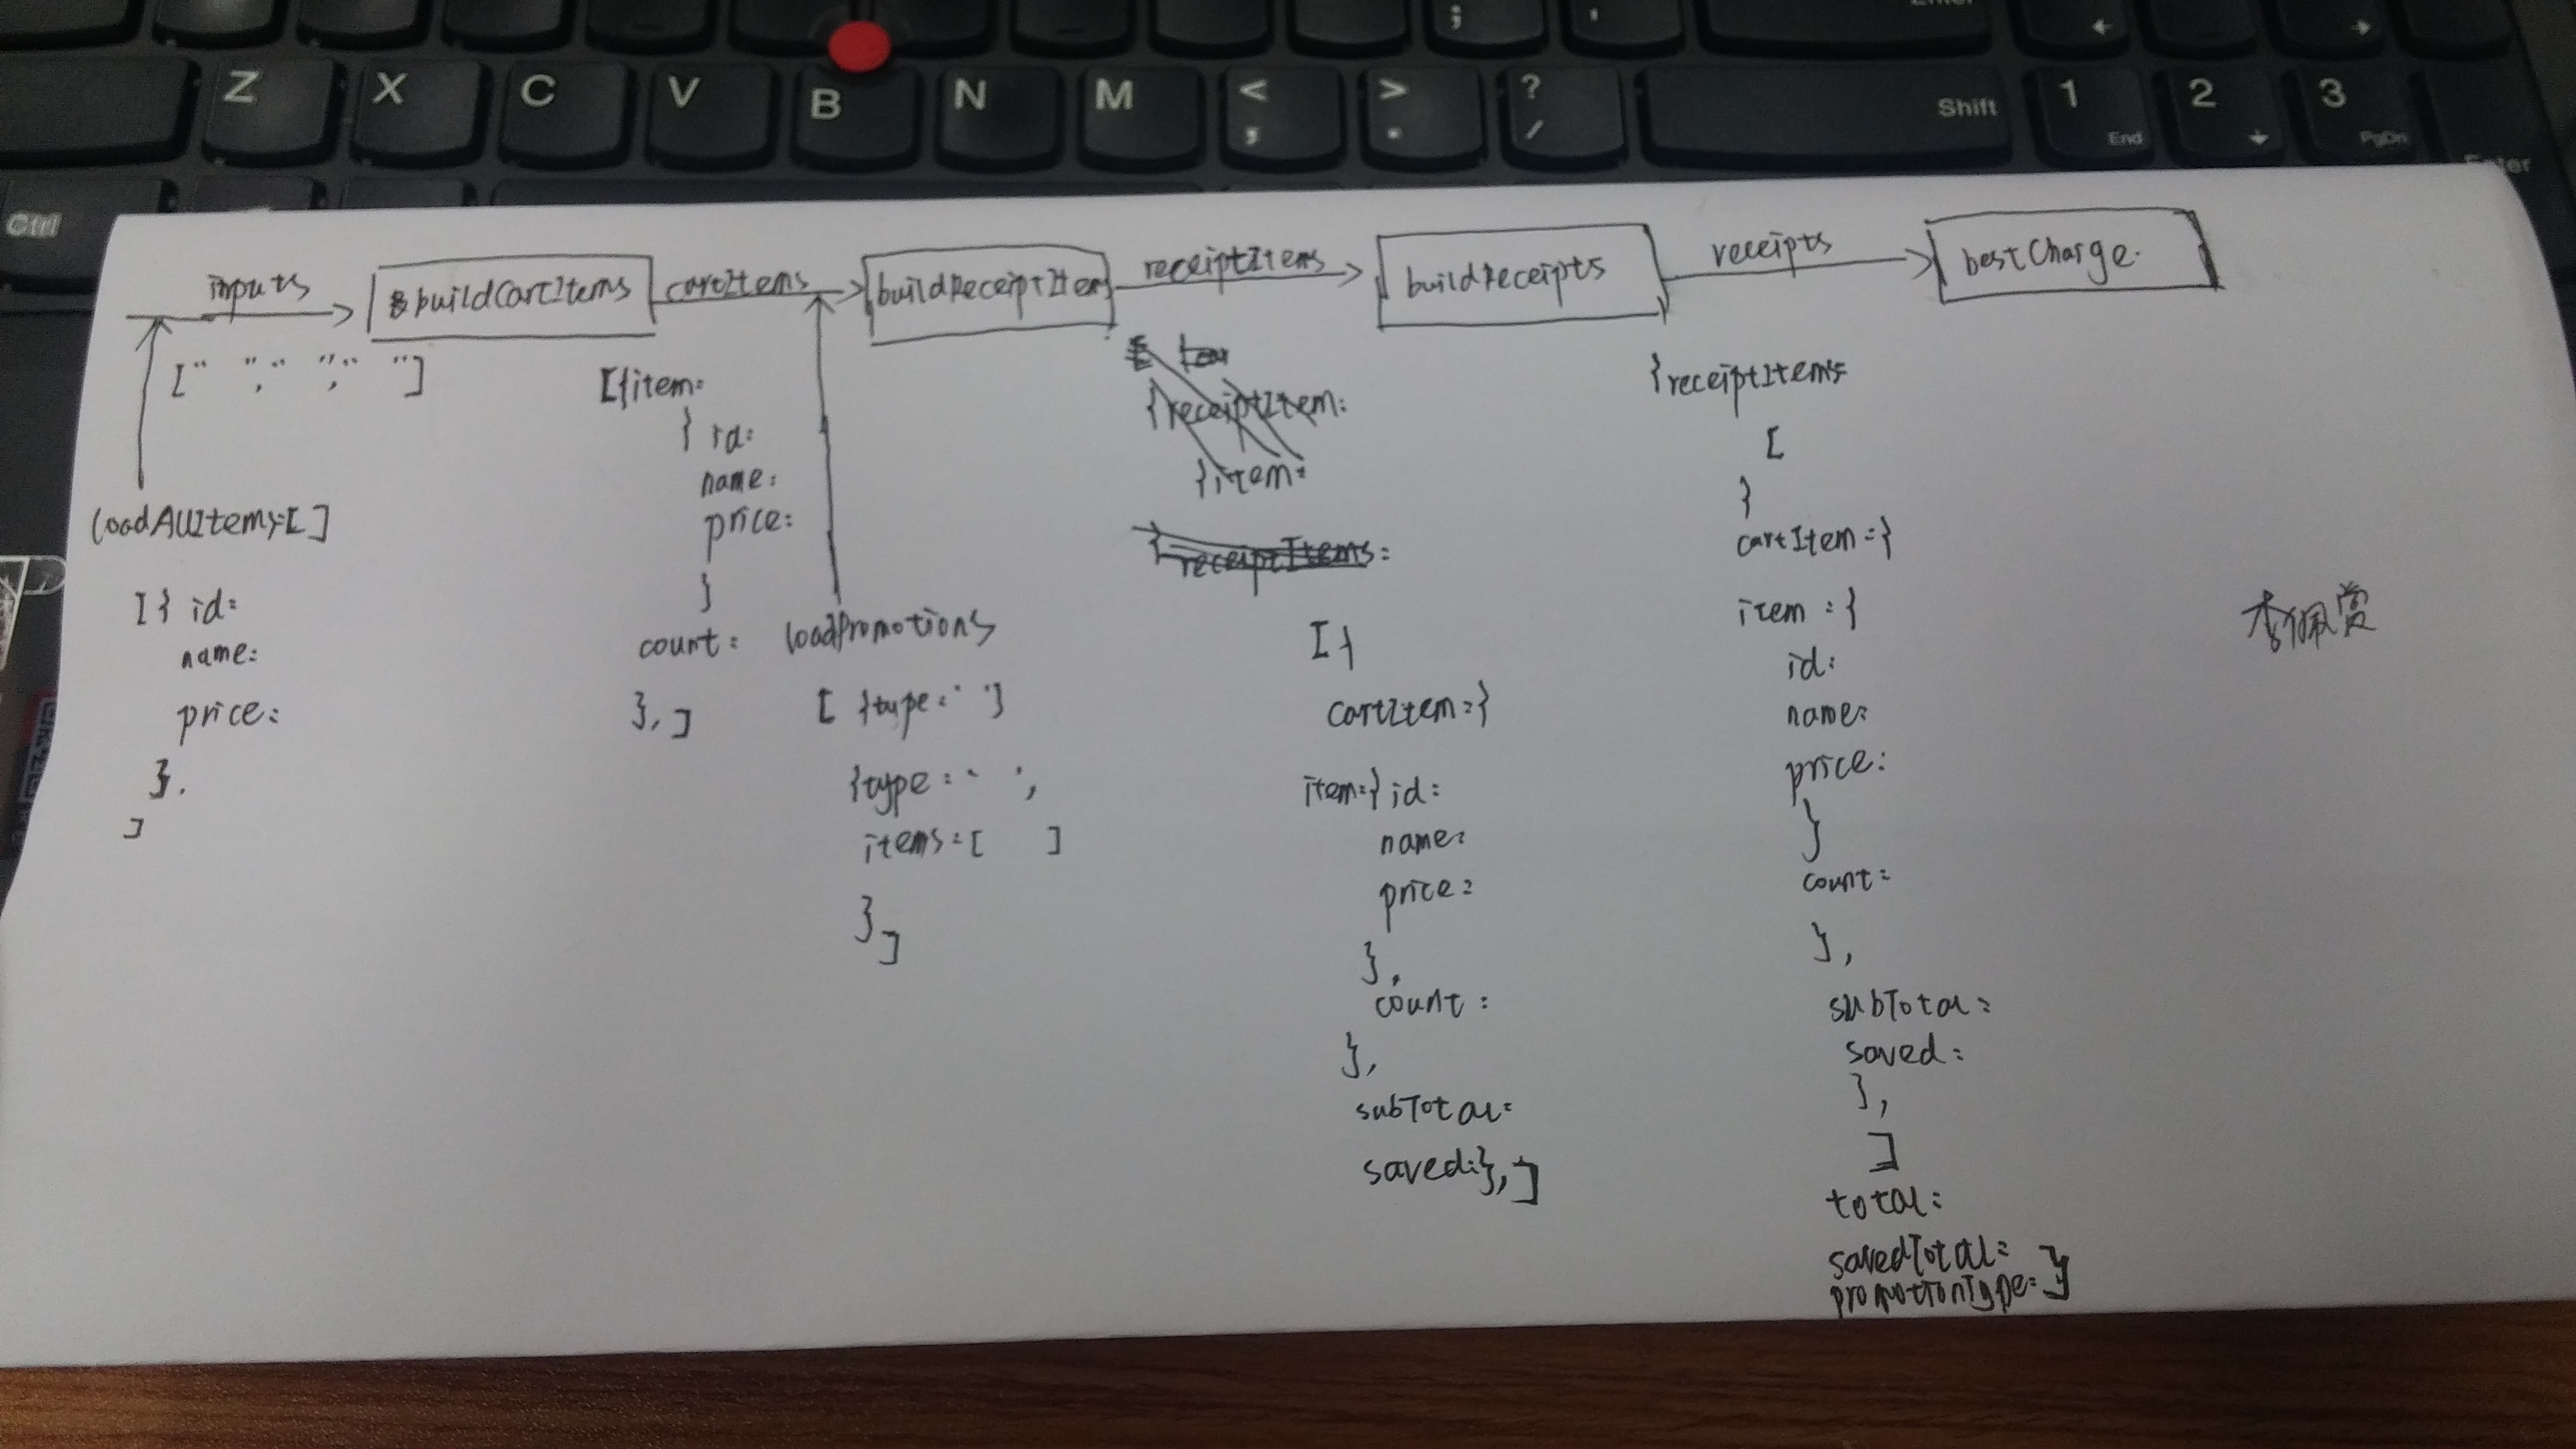 ; '
Z X C V B N M < , > . ? / Shift 1 End 2 3 PgDn
Ctrl Enter
inputs buildCartItems cartItems buildReceiptItem receiptItems buildReceipts receipts bestCharge.
[" "," "," "]
loadAllItems=[]
[{ id:
name:
price:
}.
]
[{item:
{ id:
name:
price:
}
count:
},]
loadPromotions
[ {type:' '}
{type:' ',
items:[ ]
}]
{receiptItem:
{item:
{receiptItems:
[{
cartItem:{
item:{ id:
name:
price:
},
count:
},
subTotal:
saved:},]
{receiptItems:
[
{
cartItem:{
item:{
id:
name:
price:
}
count:
},
subTotal:
saved:
},
]
total:
savedTotal:
promotionType: }
李佩赏